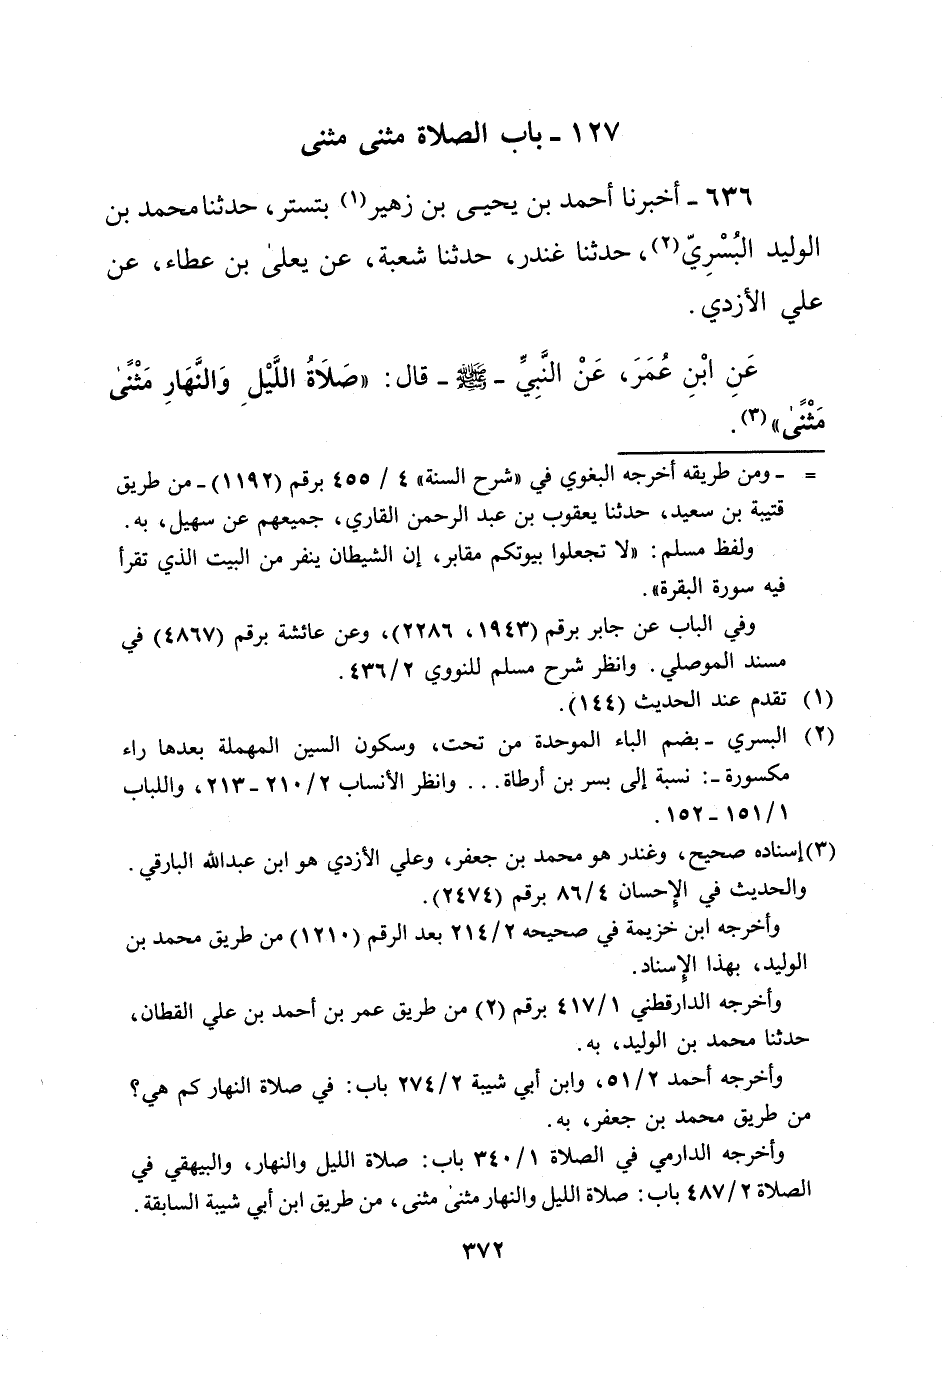 ١٢٧ - باب الصلاة مثنى مثنى
٦٣٦ - أخبرنا أحمد بن يحيى بن زهير(١) بتستر، حدثنا محمد بن
الوليد البُسْرِيّ(٢)، حدثنا غندر، حدثنا شعبة، عن يعلىٰ بن عطاء، عن
علي الأزدي.
عَنِ ابْنِ عُمَرَ، عَنْ النَّبِيِّ - ﷺ - قال: «صَلَاةُ اللَّيْلِ وَالنَّهَارِ مَثْنًىٰ
مَثْنًىٰ»(٣).
= - ومن طريقه أخرجه البغوي في «شرح السنة» ٤ / ٤٥٥ برقم (١١٩٢) - من طريق
قتيبة بن سعيد، حدثنا يعقوب بن عبد الرحمن القاري، جميعهم عن سهيل، به.
ولفظ مسلم: «لا تجعلوا بيوتكم مقابر، إن الشيطان ينفر من البيت الذي تقرأ
فيه سورة البقرة».
وفي الباب عن جابر برقم (١٩٤٣، ٢٢٨٦)، وعن عائشة برقم (٤٨٦٧) في
مسند الموصلي. وانظر شرح مسلم للنووي ٤٣٦/٢.
(١) تقدم عند الحديث (١٤٤).
(٢) البسري - بضم الباء الموحدة من تحت، وسكون السين المهملة بعدها راء
مكسورة -: نسبة إلى بسر بن أرطاة... وانظر الأنساب ٢١٠/٢ - ٢١٣، واللباب
١٥١/١ - ١٥٢.
(٣) إسناده صحيح، وغندر هو محمد بن جعفر، وعلي الأزدي هو ابن عبدالله البارقي.
والحديث في الإحسان ٨٦/٤ برقم (٢٤٧٤).
وأخرجه ابن خزيمة في صحيحه ٢١٤/٢ بعد الرقم (١٢١٠) من طريق محمد بن
الوليد، بهذا الإسناد.
وأخرجه الدارقطني ٤١٧/١ برقم (٢) من طريق عمر بن أحمد بن علي القطان،
حدثنا محمد بن الوليد، به.
وأخرجه أحمد ٥١/٢، وابن أبي شيبة ٢٧٤/٢ باب: في صلاة النهار كم هي؟
من طريق محمد بن جعفر، به.
وأخرجه الدارمي في الصلاة ٣٤٠/١ باب: صلاة الليل والنهار، والبيهقي في
الصلاة ٤٨٧/٢ باب: صلاة الليل والنهار مثنىٰ مثنى، من طريق ابن أبي شيبة السابقة.
٣٧٢